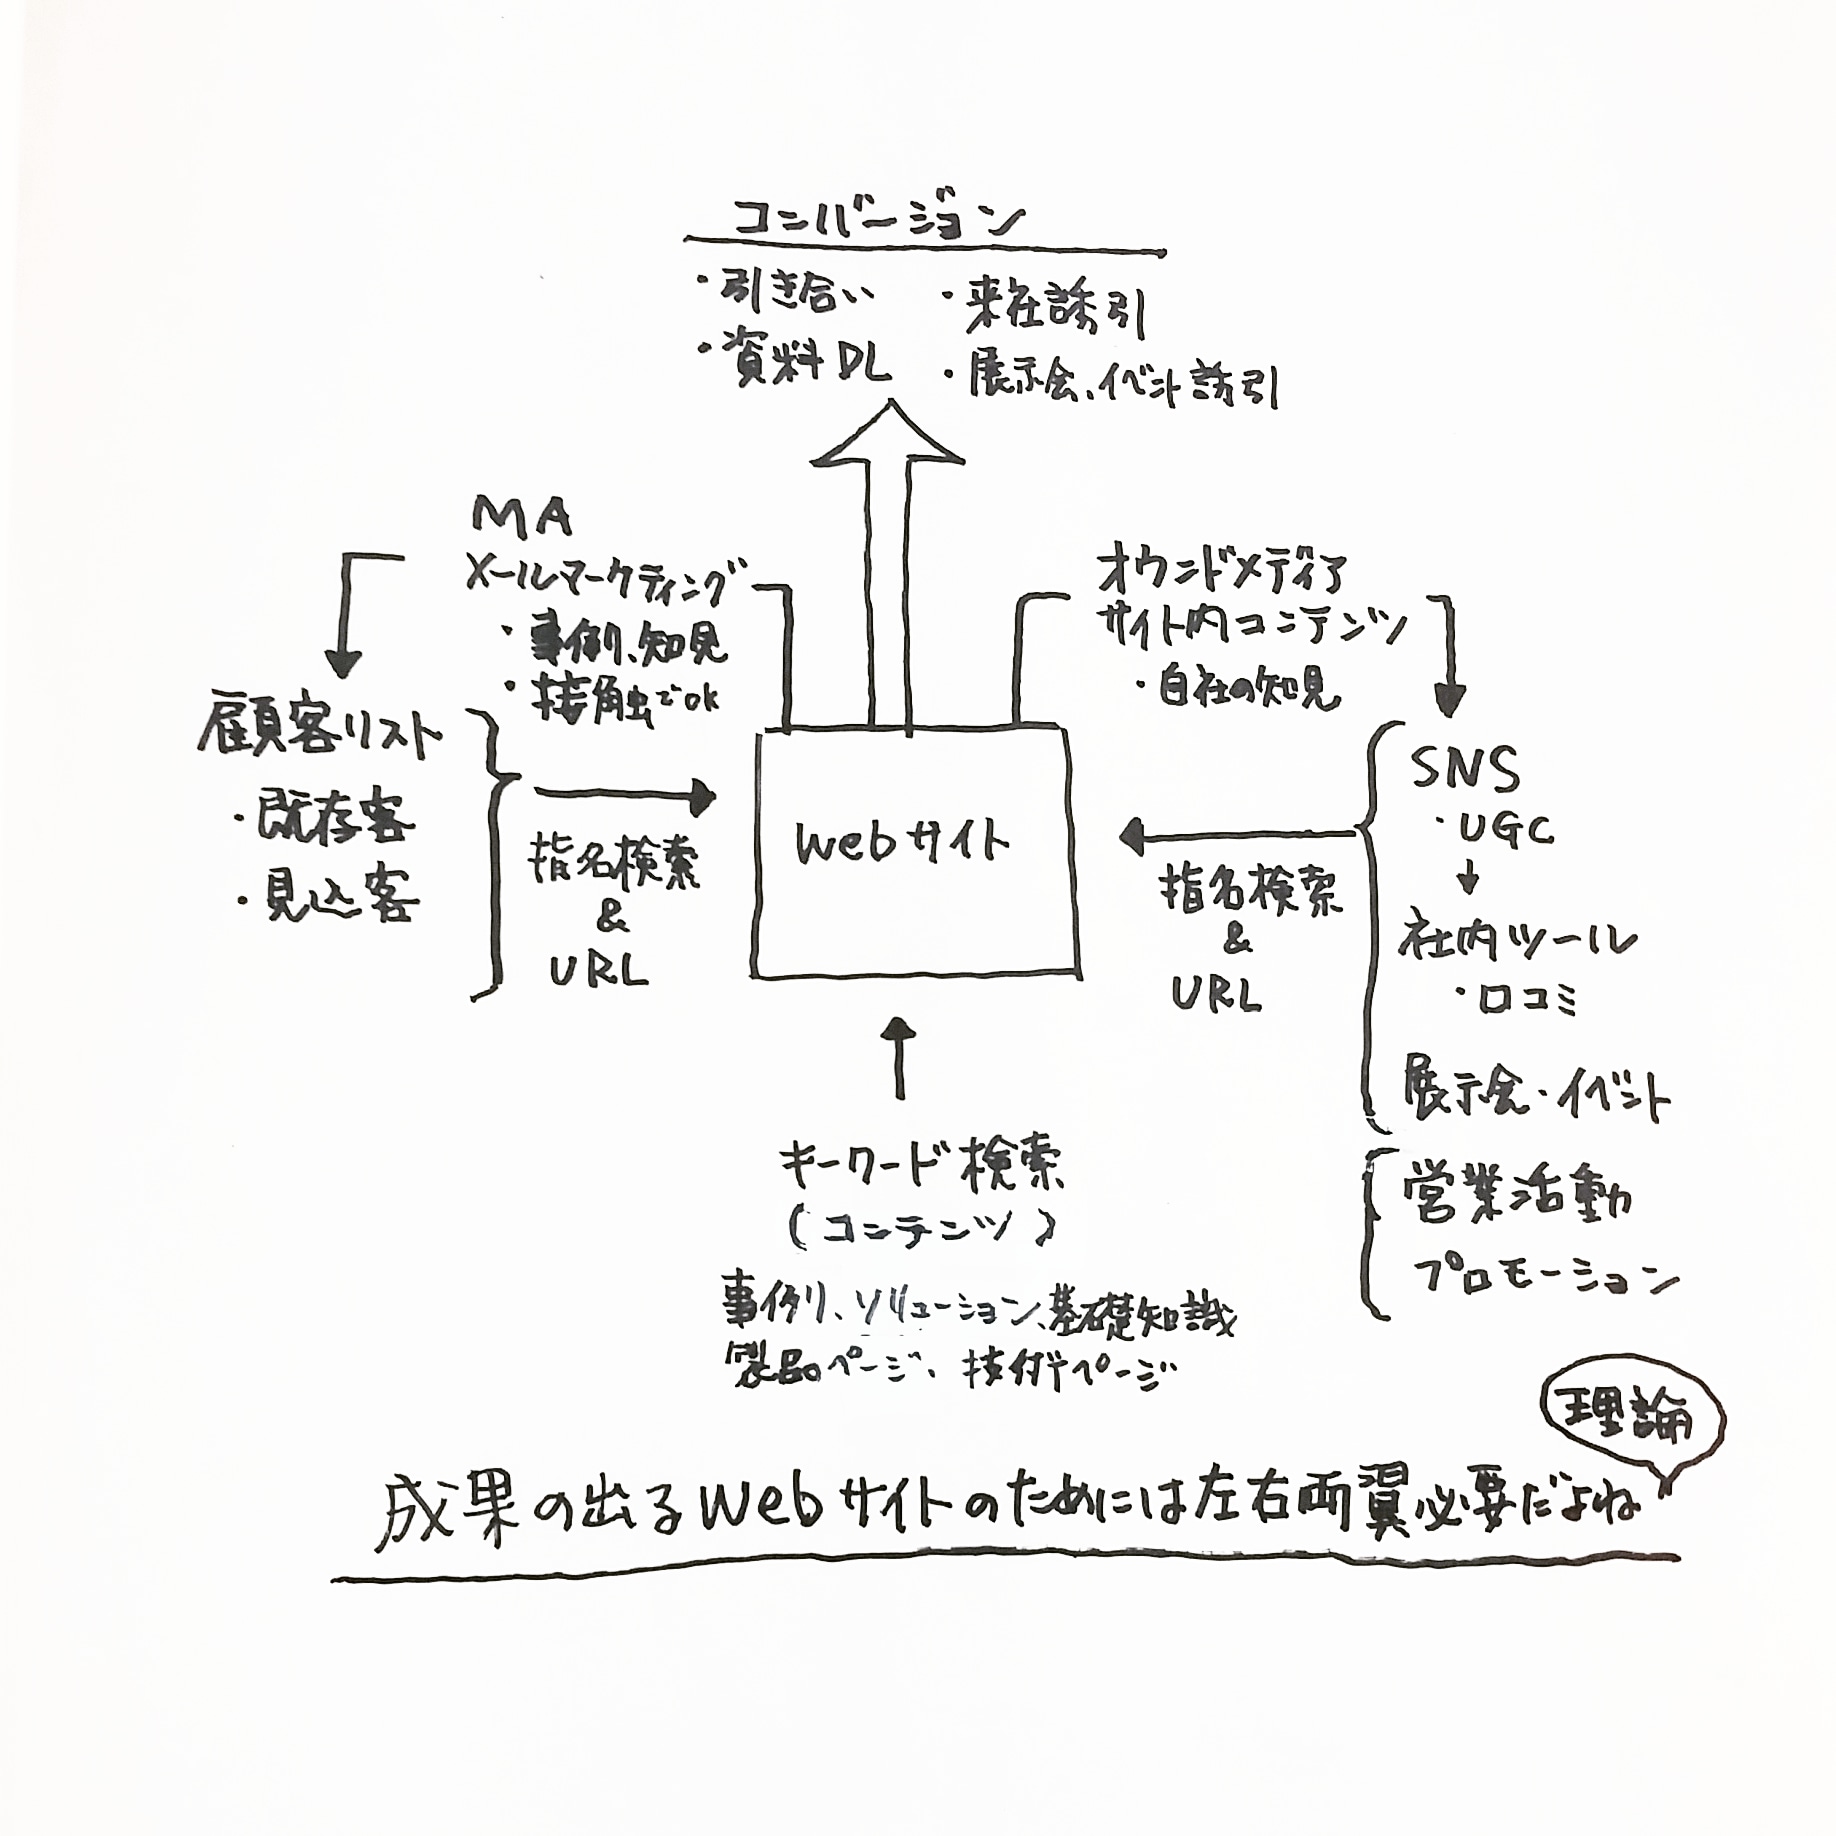 コンバージョン
・引き合い
・資料DL
・来社誘引
・展示会、イベント誘引
MA
メールマーケティング
・事例、知見
・接触でOK
オウンドメディア
サイト内コンテンツ
・自社の知見
顧客リスト
・既存客
・見込客
指名検索
&
URL
Webサイト
指名検索
&
URL
SNS
・UGC
社内ツール
・口コミ
展示会・イベント
営業活動
プロモーション
キーワード検索
(コンテンツ)
事例、ソリューション、基礎知識
製品ページ、技術ページ
理論
成果の出るWebサイトのためには左右両翼必要だよね